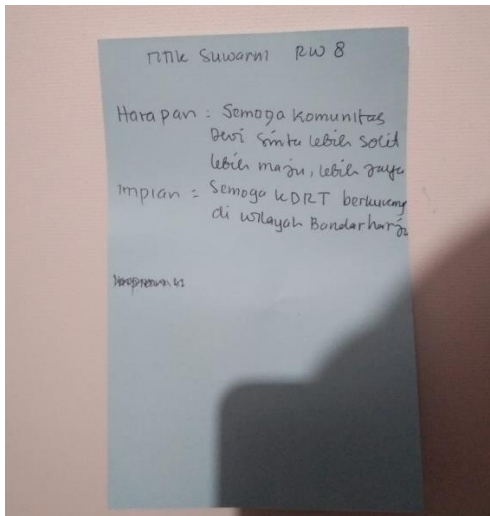 Titik Suwarni RW 8
Harapan : Semoga Komunitas
Dewi Sinta lebih solit
lebih maju, lebih jaya
Impian : Semoga KDRT berkurang
di wilayah Bandarharjo